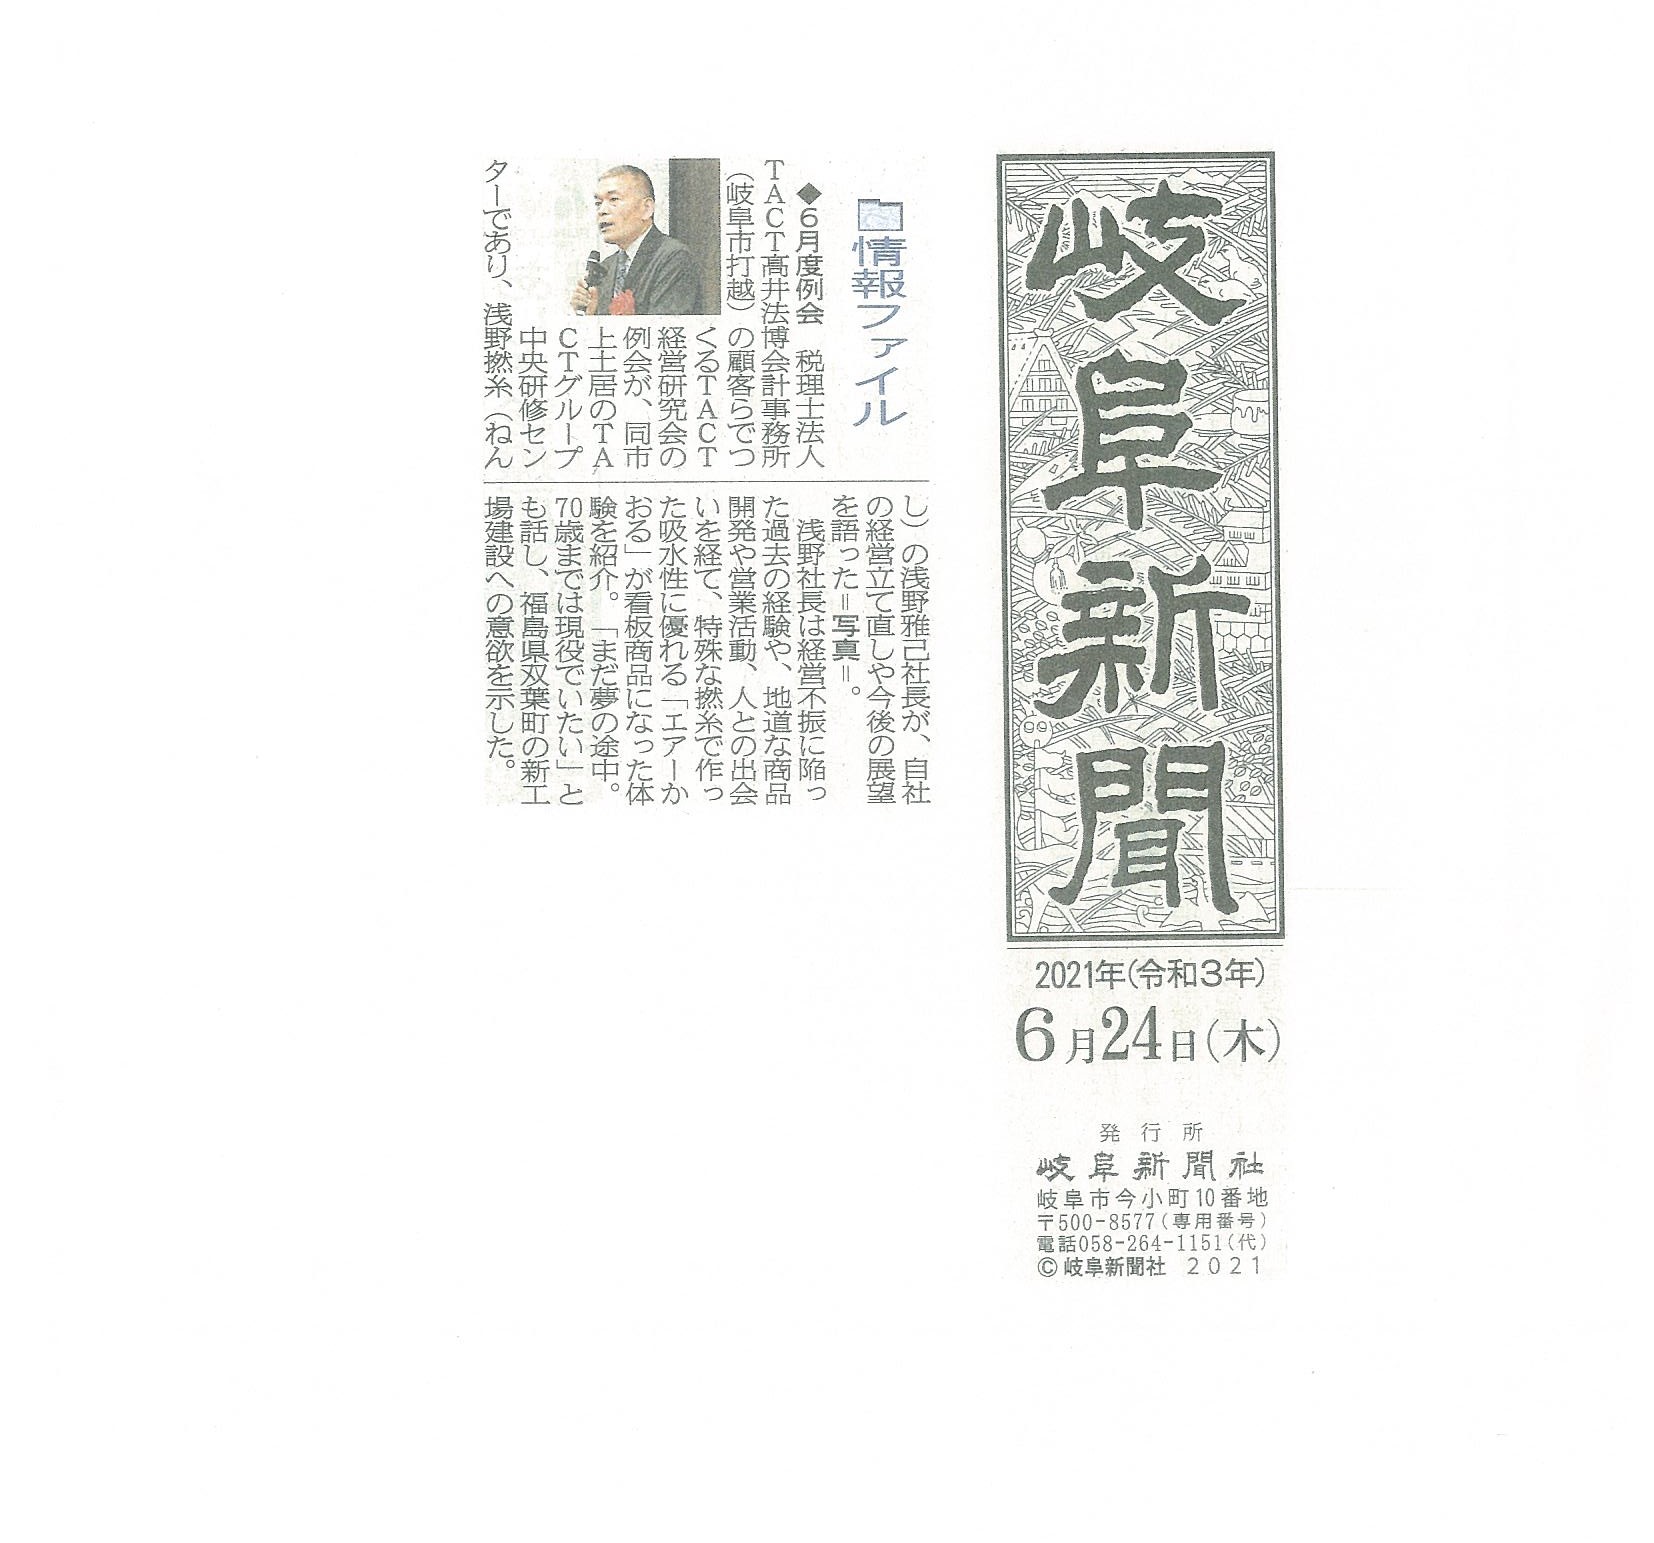 岐阜新聞
2021年(令和3年)
6月24日(木)
発行所
岐阜新聞社
岐阜市今小町10番地
〒500-8577(専用番号)
電話058-264-1151(代)
©岐阜新聞社 2021
情報ファイル
◆6月度例会 税理士法人
TACT高井法博会計事務所
(岐阜市打越)の顧客らでつ
くるTACT
経営研究会の
例会が、同市
上土居のTA
CTグループ
中央研修セン
ターであり、浅野撚糸(ねん
し)の浅野雅己社長が、自社
の経営立て直しや今後の展望
を語った＝写真＝。
浅野社長は経営不振に陥っ
た過去の経験や、地道な商品
開発や営業活動、人との出会
いを経て、特殊な撚糸で作っ
た吸水性に優れる「エアーか
おる」が看板商品になった体
験を紹介。「まだ夢の途中。
70歳までは現役でいたい」と
も話し、福島県双葉町の新工
場建設への意欲を示した。